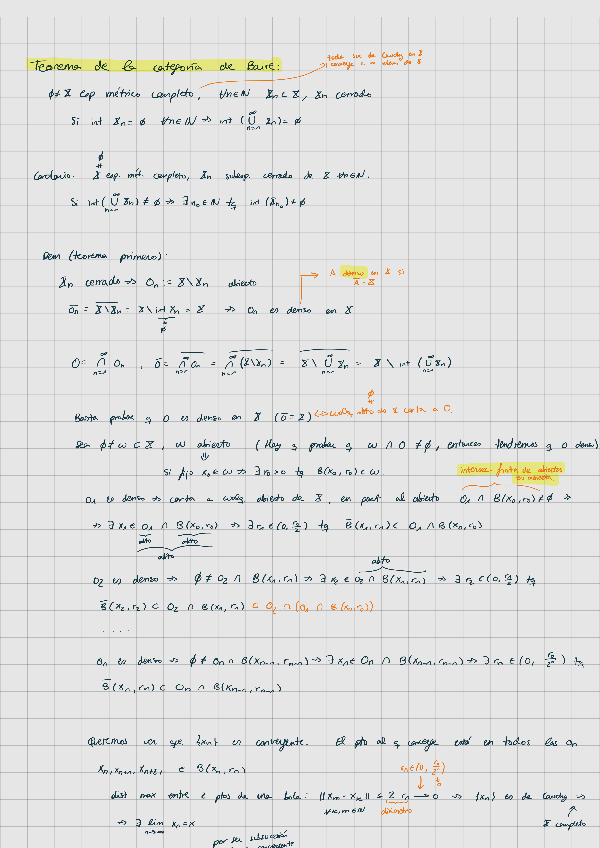 Teorema de la categoría de Baire:
toda suc de Cauchy en X
converge a un elem de X
∅≠ X esp métrico completo, ∀n∈ℕ Xn ⊂ X, Xn cerrado
Si int Xn = ∅ ∀n∈ℕ ⇒ int (⋃_{n=1}^∞ Xn) = ∅
∅
≠
Corolario. X esp. mét. completo, Xn subesp. cerrado de X ∀n∈ℕ.
Si int(⋃_{n=1}^∞ Xn) ≠ ∅ ⇒ ∃ n₀∈ℕ tq int (Xn₀) ≠ ∅
Dem (teorema primero):
A denso en X si
Ā = X
Xn cerrado ⇒ On := X\Xn abierto
Ōn = X\Xn = X\ int Xn = X ⇒ On es denso en X
∅
O = ⋂_{n=1}^∞ On , Ō = ⋂_{n=1}^∞ On = ⋂_{n=1}^∞ (X\Xn) = X \ ⋃_{n=1}^∞ Xn = X \ int (⋃_{n=1}^∞ Xn)
∅
≠
Basta probar q O es denso en X (Ō = X) ⇔ cualq. abto de X corta a O.
Sea ∅≠ w ⊂ X, w abierto (Hay q probar q w ∩ O ≠ ∅, entonces tendremos q O denso)
Si fijo x₀∈w ⇒ ∃ r₀>0 tq B(x₀, r₀) ⊂ w
intersec. finita de abiertos
es abierta
O₁ es denso ⇒ corta a cualq abierto de X, en part al abierto O₁ ∩ B(x₀, r₀) ≠ ∅ ⇒
⇒ ∃ x₁ ∈ O₁ ∩ B(x₀, r₀) ⇒ ∃ r₁ ∈ (0, r₀/2) tq B̄(x₁, r₁) ⊂ O₁ ∩ B(x₀, r₀)
abto abto
abto
abto
O₂ es denso ⇒ ∅ ≠ O₂ ∩ B(x₁, r₁) ⇒ ∃ x₂ ∈ O₂ ∩ B(x₁, r₁) ⇒ ∃ r₂ ∈ (0, r₀/2²) tq
B̄(x₂, r₂) ⊂ O₂ ∩ B(x₁, r₁) ⊂ O₂ ∩ (O₁ ∩ B(x₀, r₀))
.....
On es denso ⇒ ∅ ≠ On ∩ B(xn-1, rn-1) ⇒ ∃ xn ∈ On ∩ B(xn-1, rn-1) ⇒ ∃ rn ∈ (0, r₀/2ⁿ) tq
B̄(xn, rn) ⊂ On ∩ B(xn-1, rn-1)
Queremos ver que {xn} es convergente. El pto al q converge está en todos los On
xn, xn+1, xn+2, ∈ B(xn, rn)
rn∈(0, r₀/2ⁿ)
↓
0
dist max entre 2 ptos de una bola: ||xm - xk|| ≤ 2 rn → 0 ⇒ {xn} es de Cauchy ⇒
∀k,m≥n
diámetro
X completo
⇒ ∃ lim xn = x
n→∞
por ser subsucesión